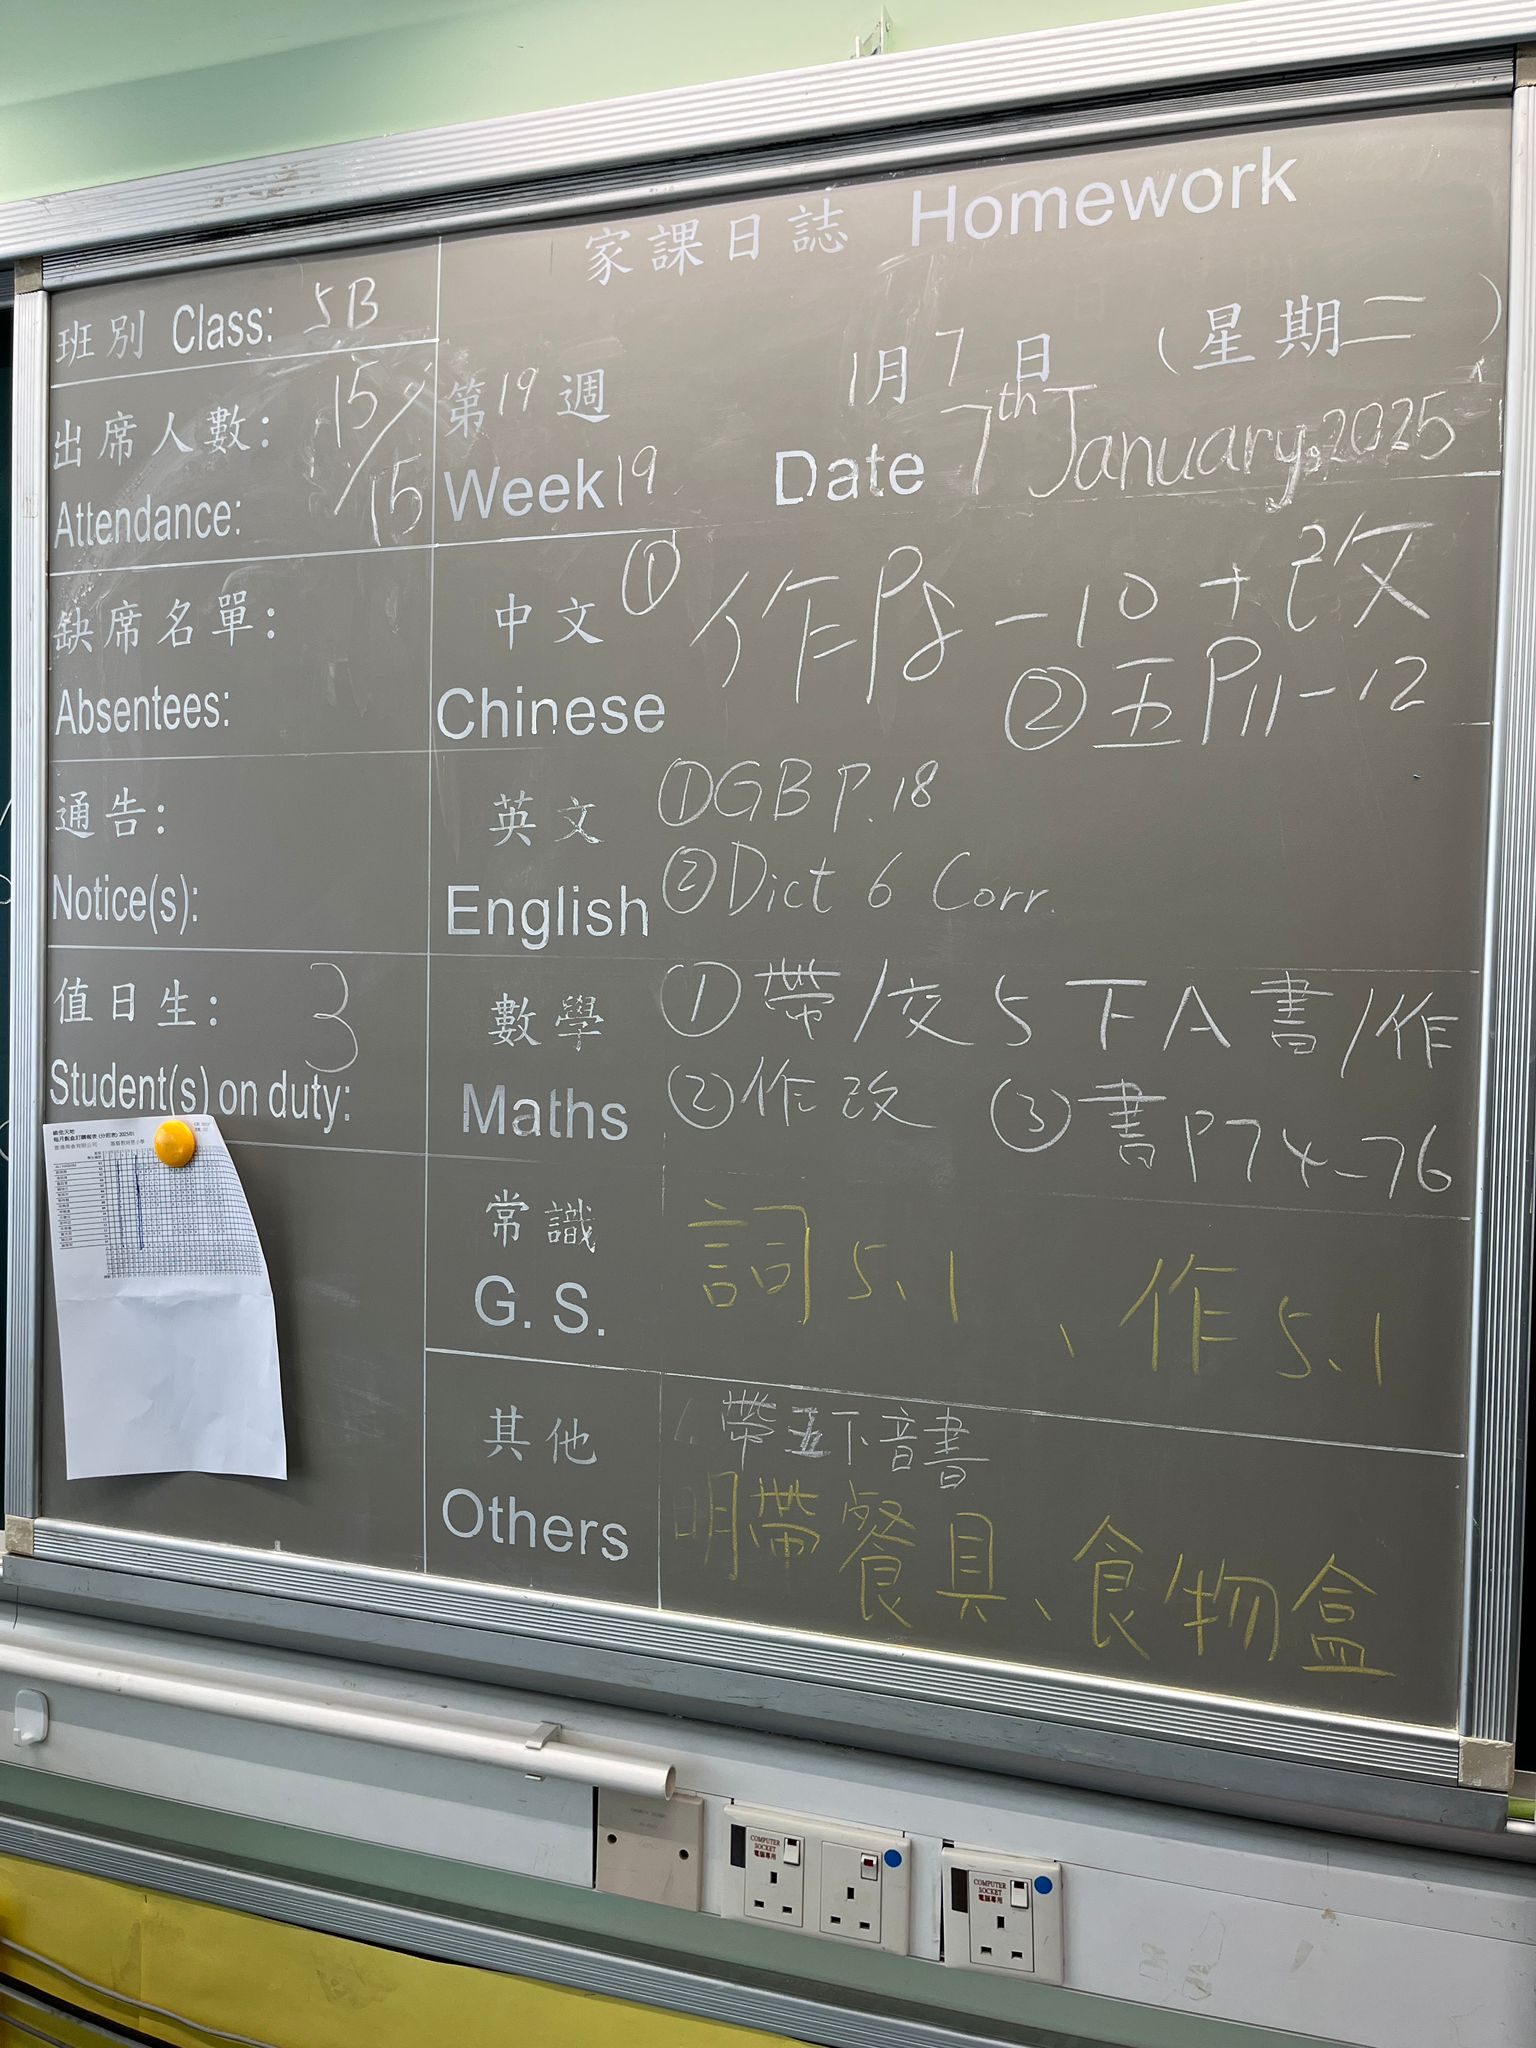 家課日誌 Homework
班別 Class: 5B
出席人數: 15/15
Attendance:
第19週
1月7日 (星期二)
Week 19
Date 7th January, 2025
缺席名單:
Absentees:
中文 ① 作P8-10+改
Chinese ② 五P11-12
通告:
Notice(s):
英文 ①GB P.18
English ②Dict 6 Corr.
值日生: 3
Student(s) on duty:
數學 ①帶/交5下A書/作
Maths ②作改 ③書P74-76
常識 詞5.1、作5.1
G. S.
其他 帶五下音書
Others 明帶餐具、食物盒
COMPUTER SOCKET
電腦專用
COMPUTER SOCKET
電腦專用